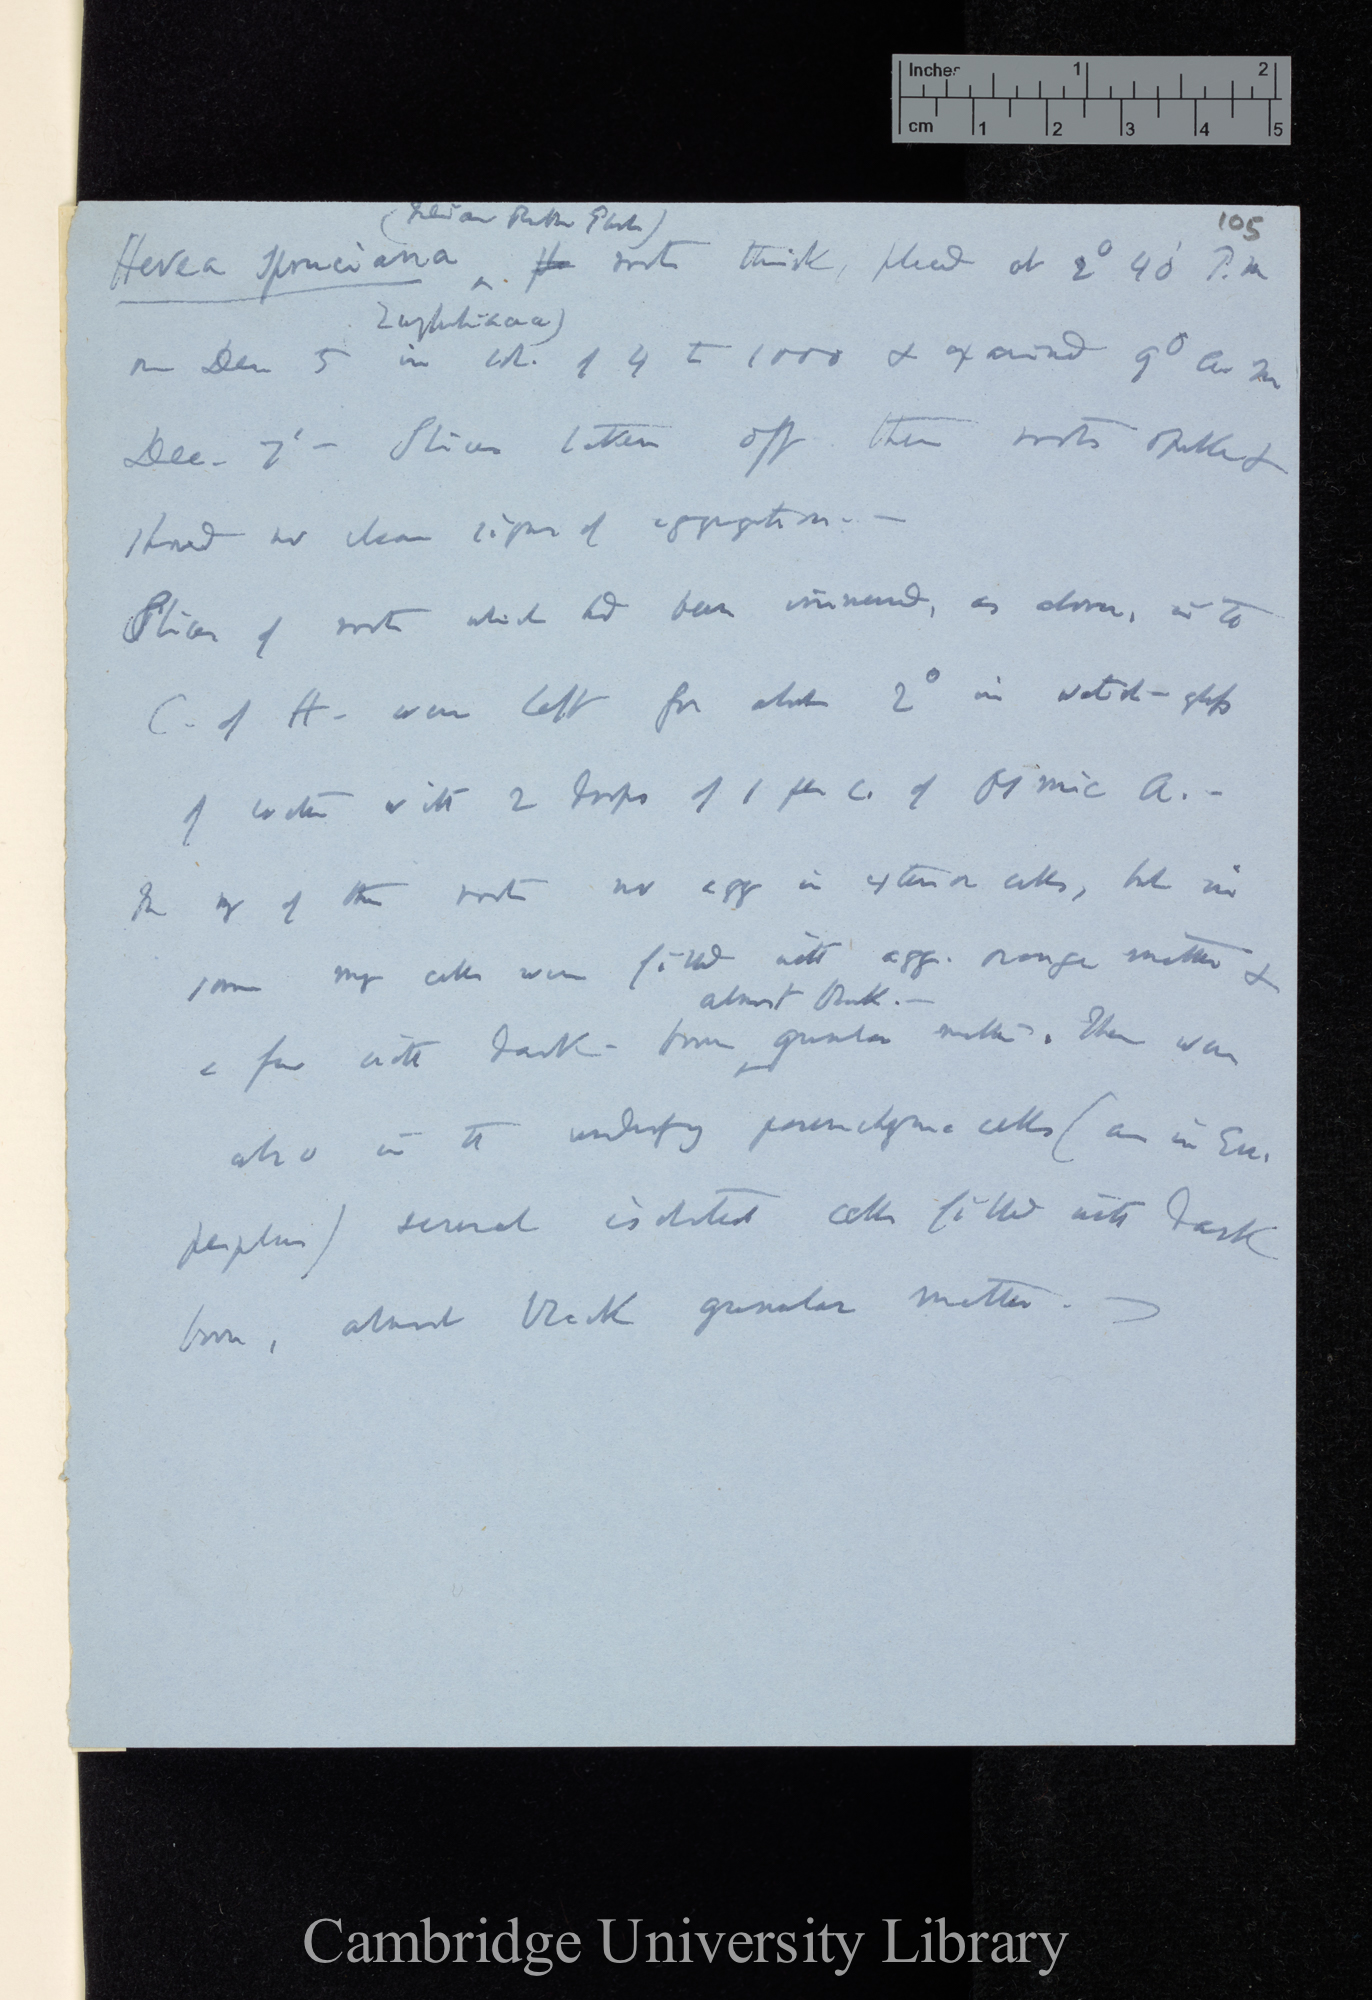 Inches 1 2
cm 1 2 3 4 5
105
(Indian Rubber Plant)
Hevea spruciana ^ roots thick, placed at 2° 40' P.m
Euphorbiaceae)
on Dec 5 in sol. of 4 to 1000 & examined 9° a m
Dec. 7' — Slices taken off these roots &
showed no clear signs of aggregation. —
Slices of roots which had been immersed, as above, in to
C. of A. were left for about 2° in watch-glass
of water with 2 drops of 1 per c. of Osmic A. —
In of these roots no agg in exterior cells, but in
some many cells were filled with agg. orange matter &
almost black. —
a few with dark-brown ^ granular matter. There were
also in the underlying parenchyma cells (as in Eu.
peplus) several isolated cells filled with dark
brown, almost black granular matter. —
Cambridge University Library